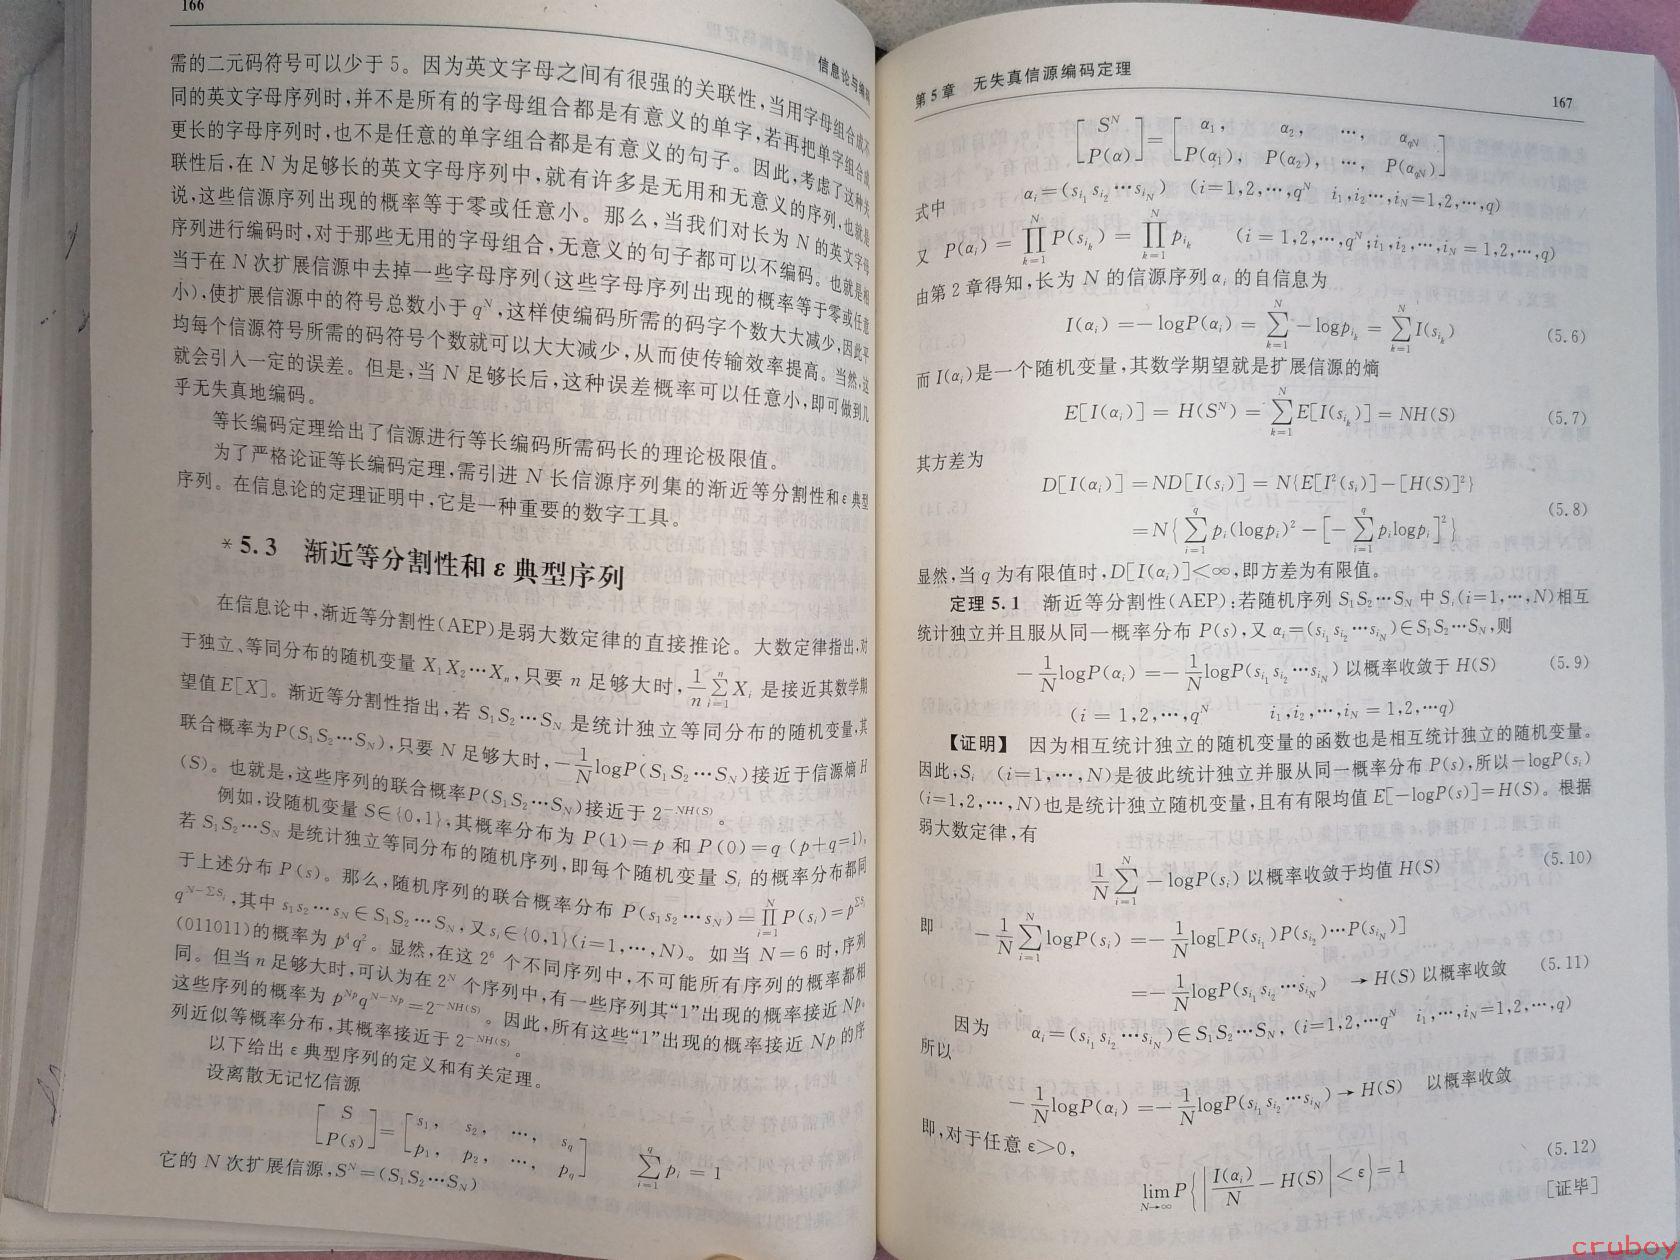 166
信息论与编码
需的二元码符号可以少于 5。因为英文字母之间有很强的关联性,当用字母组合成不
同的英文字母序列时,并不是所有的字母组合都是有意义的单字,若再把单字组合成
更长的字母序列时,也不是任意的单字组合都是有意义的句子。因此,考虑了这种关
联性后,在 N 为足够长的英文字母序列中,就有许多是无用和无意义的序列,也就是
说,这些信源序列出现的概率等于零或任意小。那么,当我们对长为 N 的英文字母
序列进行编码时,对于那些无用的字母组合,无意义的句子都可以不编码。也就是相
当于在 N 次扩展信源中去掉一些字母序列(这些字母序列出现的概率等于零或任意
小),使扩展信源中的符号总数小于 q^N,这样使编码所需的码字个数大大减少,因此平
均每个信源符号所需的码符号个数就可以大大减少,从而使传输效率提高。当然,这
就会引入一定的误差。但是,当 N 足够长后,这种误差概率可以任意小,即可做到几
乎无失真地编码。
等长编码定理给出了信源进行等长编码所需码长的理论极限值。
为了严格论证等长编码定理,需引进 N 长信源序列集的渐近等分割性和 ε 典型
序列。在信息论的定理证明中,它是一种重要的数字工具。
*5.3 渐近等分割性和 ε 典型序列
在信息论中,渐近等分割性(AEP)是弱大数定律的直接推论。大数定律指出,对
于独立、等同分布的随机变量 X₁X₂…Xₙ,只要 n 足够大时,1/n ∑_{i=1}^{n} Xᵢ 是接近其数学期
望值 E[X]。渐近等分割性指出,若 S₁S₂…S_N 是统计独立等同分布的随机变量,其
联合概率为P(S₁S₂…S_N),只要 N 足够大时,−1/N logP(S₁S₂…S_N)接近于信源熵 H
(S)。也就是,这些序列的联合概率P(S₁S₂…S_N)接近于 2^{−NH(S)}。
例如,设随机变量 S∈{0,1},其概率分布为 P(1)=p 和 P(0)=q (p+q=1),
若 S₁S₂…S_N 是统计独立等同分布的随机序列,即每个随机变量 Sᵢ 的概率分布都同
于上述分布 P(s)。那么,随机序列的联合概率分布 P(s₁s₂…s_N)=∏_{i=1}^{N} P(sᵢ)=p^{∑sᵢ}
q^{N−∑sᵢ},其中 s₁s₂…s_N∈S₁S₂…S_N,又 sᵢ∈{0,1}(i=1,…,N)。如当 N=6 时,序列
(011011)的概率为 p⁴q²。显然,在这 2⁶ 个不同序列中,不可能所有序列的概率都相
同。但当 n 足够大时,可认为在 2^N 个序列中,有一些序列其“1”出现的概率接近 Np。
这些序列的概率为 p^{Np}q^{N−Np}=2^{−NH(S)}。因此,所有这些“1”出现的概率接近 Np 的序
列近似等概率分布,其概率接近于 2^{−NH(S)}。
以下给出 ε 典型序列的定义和有关定理。
设离散无记忆信源
[S; P(s)]=[s₁, s₂, …, s_q; p₁, p₂, …, p_q] ∑_{i=1}^{q} pᵢ = 1
它的 N 次扩展信源,S^N=(S₁S₂…S_N)
第 5 章 无失真信源编码定理
167
[S^N; P(α)]=[α₁, α₂, …, α_{q^N}; P(α₁), P(α₂), …, P(α_{q^N})]
式中 αᵢ=(s_{i₁}s_{i₂}…s_{i_N}) (i=1,2,…,q^N i₁,i₂…,i_N=1,2,…,q)
又 P(αᵢ) = ∏_{k=1}^{N} P(s_{i_k}) = ∏_{k=1}^{N} p_{i_k} (i = 1,2,…,q^N;i₁,i₂,…,i_N = 1,2,…,q)
由第 2 章得知,长为 N 的信源序列 αᵢ 的自信息为
I(αᵢ) =− logP(αᵢ) = ∑_{k=1}^{N} −logp_{i_k} = ∑_{k=1}^{N} I(s_{i_k}) (5.6)
而 I(αᵢ)是一个随机变量,其数学期望就是扩展信源的熵
E[I(αᵢ)] = H(S^N) = ∑_{k=1}^{N} E[I(s_{i_k})] = NH(S) (5.7)
其方差为
D[I(αᵢ)] = ND[I(sᵢ)] = N{E[I²(sᵢ)]−[H(S)]²}
=N{∑_{i=1}^{q} pᵢ(logpᵢ)²−[−∑_{i=1}^{q} pᵢlogpᵢ]²} (5.8)
显然,当 q 为有限值时,D[I(αᵢ)]<∞,即方差为有限值。
定理 5.1 渐近等分割性(AEP):若随机序列 S₁S₂…S_N 中 Sᵢ(i=1,…,N)相互
统计独立并且服从同一概率分布 P(s),又 αᵢ=(s_{i₁}s_{i₂}…s_{i_N})∈S₁S₂…S_N,则
−1/N logP(αᵢ) =−1/N logP(s_{i₁}s_{i₂}…s_{i_N}) 以概率收敛于 H(S) (5.9)
(i = 1,2,…,q^N i₁,i₂,…,i_N = 1,2,…q)
【证明】 因为相互统计独立的随机变量的函数也是相互统计独立的随机变量。
因此,Sᵢ (i=1,…,N)是彼此统计独立并服从同一概率分布 P(s),所以−logP(sᵢ)
(i=1,2,…,N)也是统计独立随机变量,且有有限均值 E[−logP(s)]=H(S)。根据
弱大数定律,有
1/N ∑_{i=1}^{N} − logP(sᵢ) 以概率收敛于均值 H(S) (5.10)
即 −1/N ∑_{i=1}^{N} logP(sᵢ) =−1/N log[P(s_{i₁})P(s_{i₂})…P(s_{i_N})]
=−1/N logP(s_{i₁}s_{i₂}…s_{i_N}) → H(S) 以概率收敛 (5.11)
因为 αᵢ=(s_{i₁}s_{i₂}…s_{i_N})∈S₁S₂…S_N, (i=1,2,…q^N i₁,…,i_N=1,2,…,q)
所以
−1/N logP(αᵢ) =−1/N logP(s_{i₁}s_{i₂}…s_{i_N}) → H(S) 以概率收敛
即,对于任意 ε>0,
lim_{N→∞} P{|I(αᵢ)/N − H(S)| < ε} = 1 (5.12)
[证毕]
cruboy